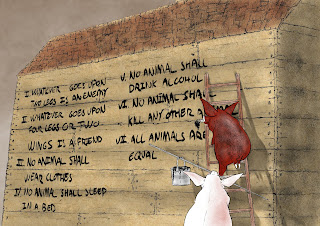 I WHATEVER GOES UPON
TWO LEGS IS AN ENEMY
II WHATEVER GOES UPON
FOUR LEGS OR TWO
WINGS IS A FRIEND
III NO ANIMAL SHALL
WEAR CLOTHES
IV NO ANIMAL SHALL SLEEP
IN A BED
V. NO ANIMAL SHALL
DRINK ALCOHOL
VI. NO ANIMAL SHALL
KILL ANY OTHER
VI ALL ANIMALS ARE
EQUAL